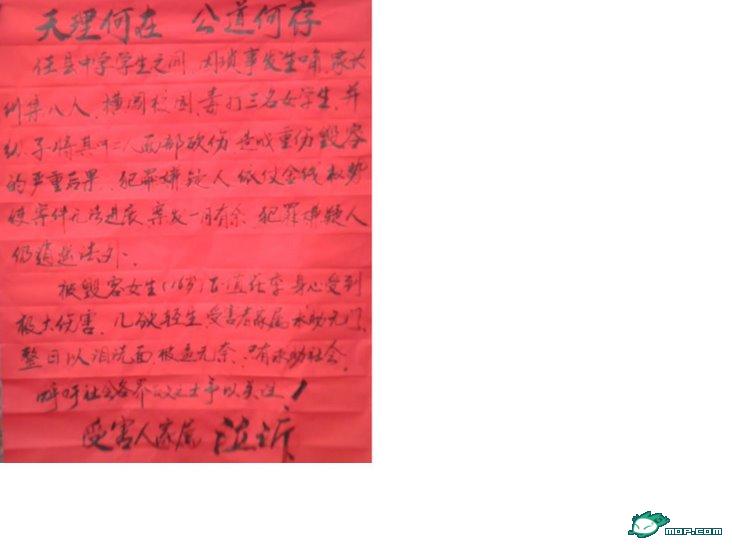 天理何在 公道何存
任县中学学生之间,因琐事发生口角,家长
纠集八人,横闯校园,毒打三名女学生,并
纵子将其中二人面部砍伤,造成重伤毁容
的严重后果。犯罪嫌疑人依仗金钱权势
使案件无法进展,案发一月有余,犯罪嫌疑人
仍逍遥法外。
被毁容女生(16岁)正值花季,身心受到
极大伤害,几欲轻生,受害者家属求助无门,
整日以泪洗面,被逼无奈,只有求助社会,
呼吁社会各界正义之士予以关注!
受害人家属 泣诉
MOP.COM